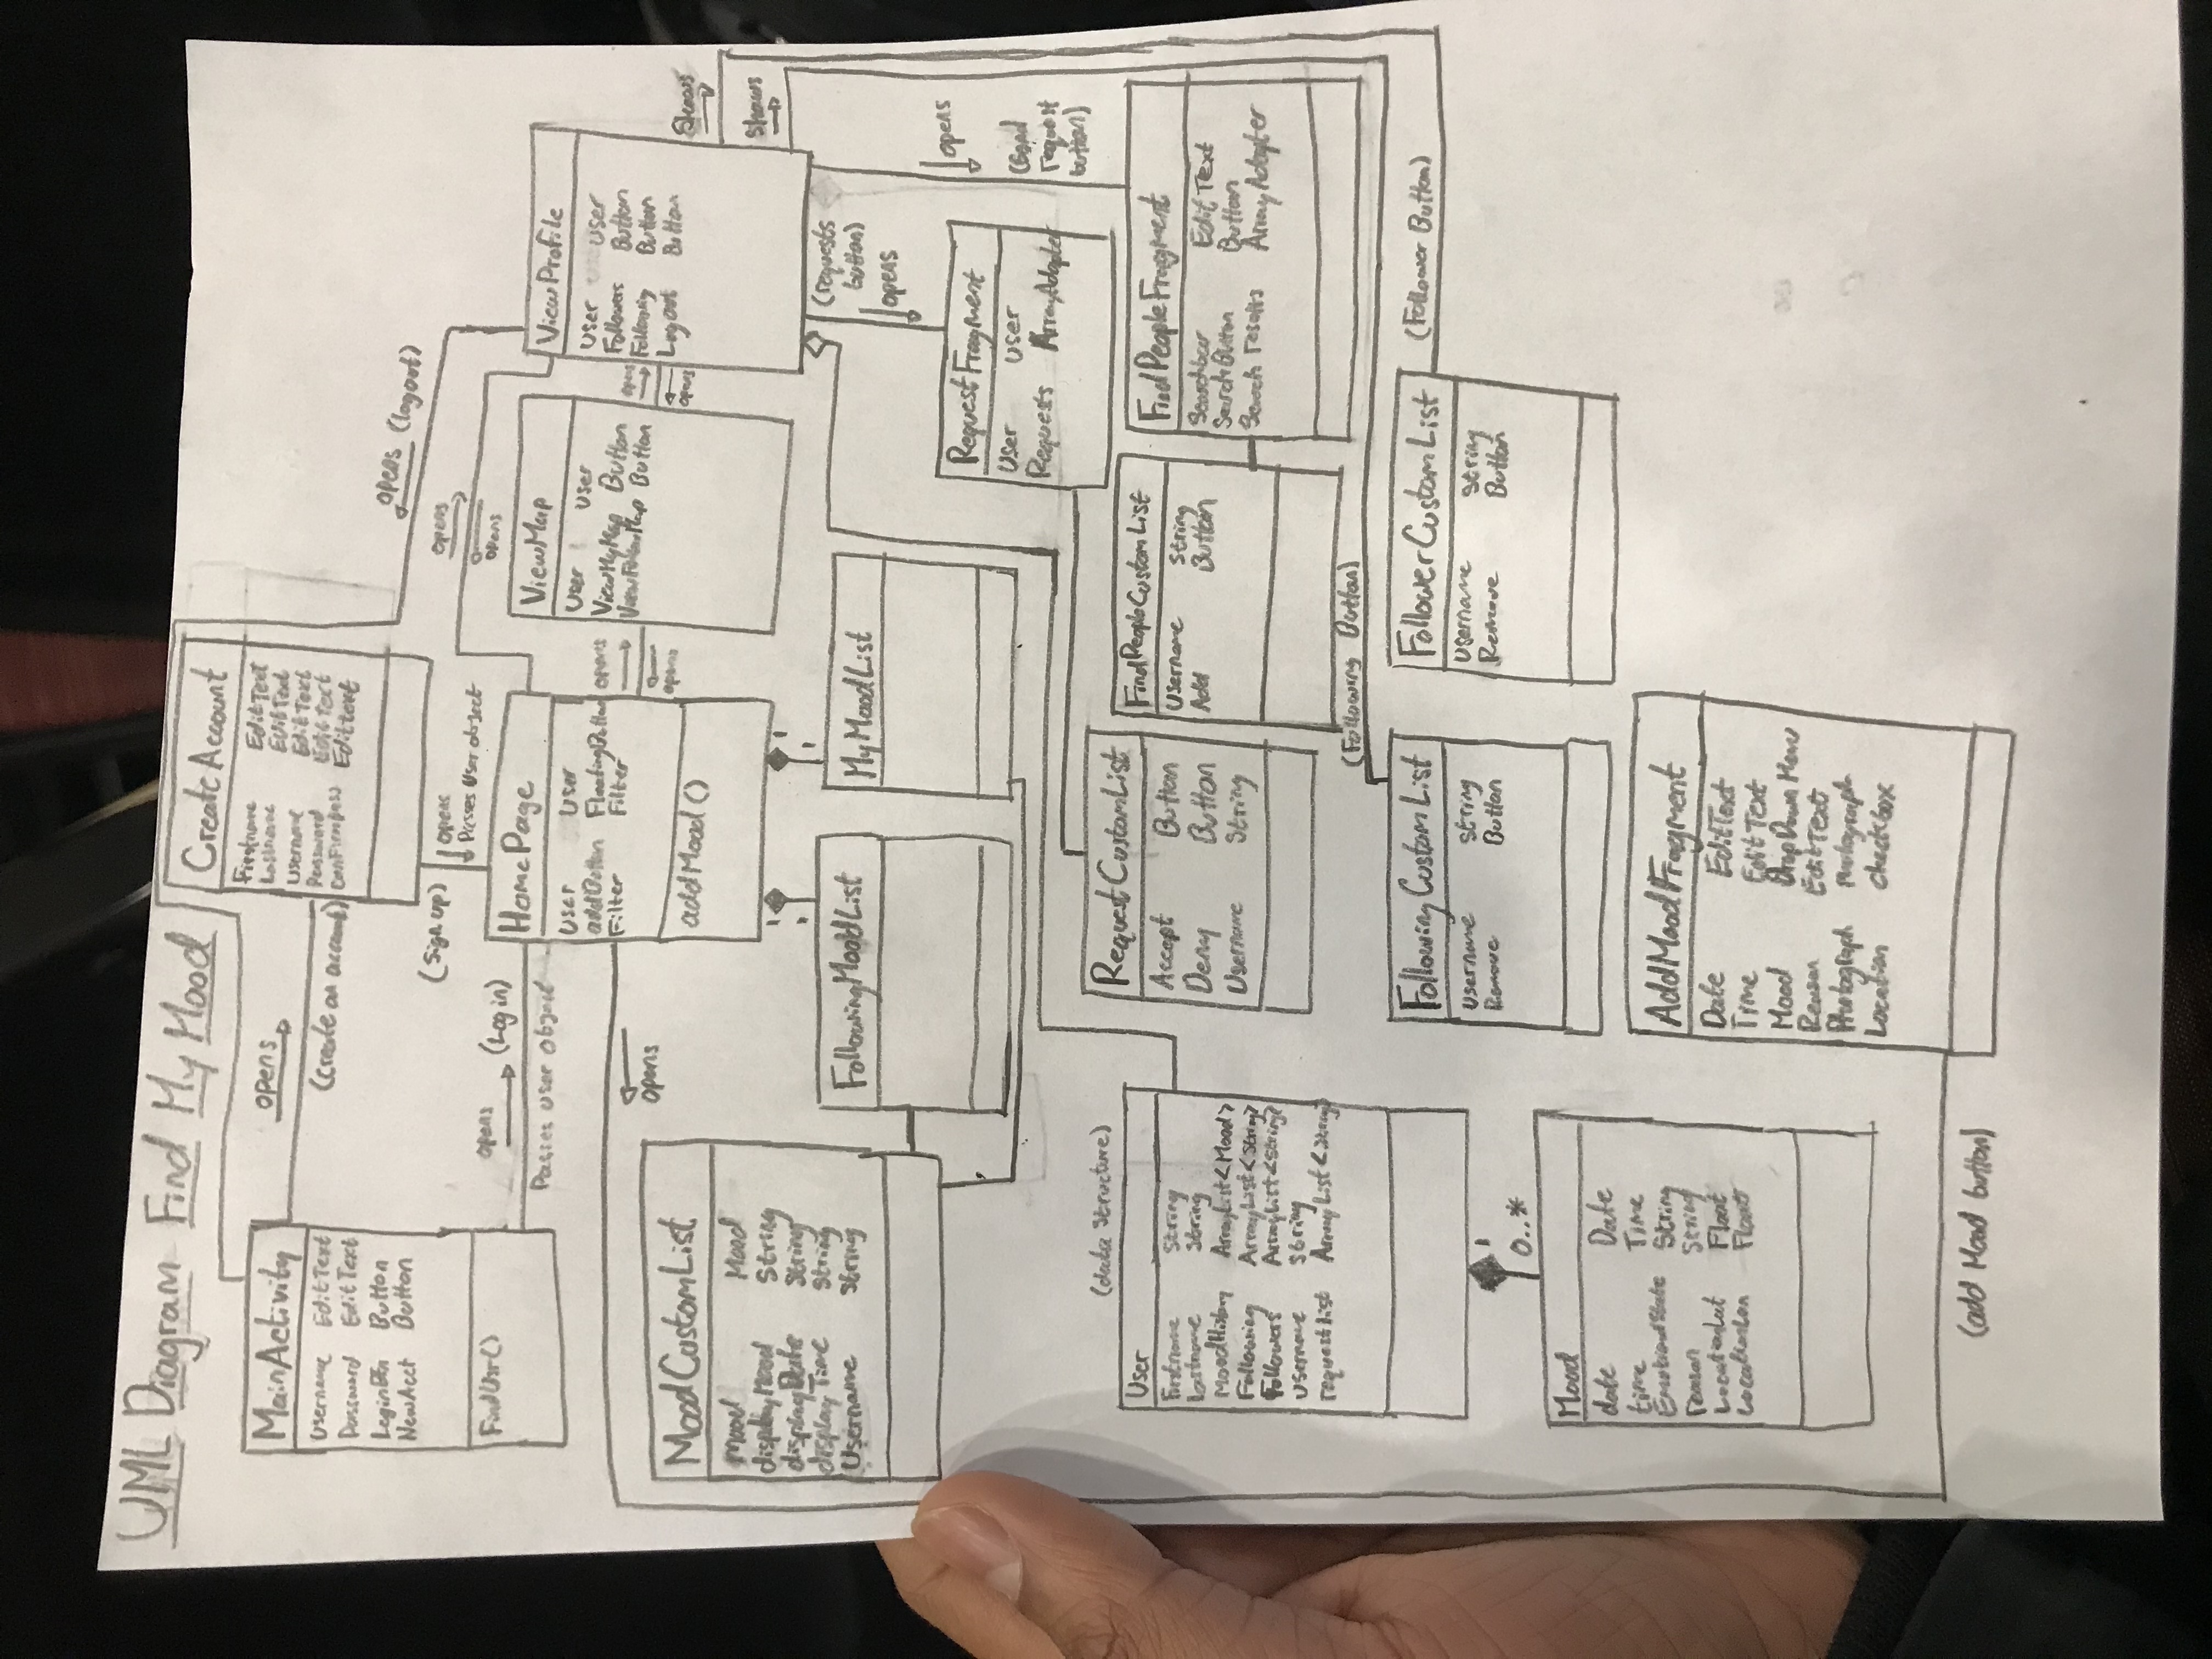 UML Diagram Find My Mood
MainActivity
Username EditText
Password EditText
LoginBtn Button
NewAcct Button
FindUsr()
opens
(create an account)
CreateAccount
Firstname EditText
Lastname EditText
Username EditText
Password EditText
confirmpass Edittext
opens (logout)
(Sign up)
opens
Passes User object
opens
opens
opens (Log in)
Passes user object
HomePage
User User
addButton FloatingButton
Filter Filter
addMood()
opens
opens
ViewMap
User User
ViewMyMap Button
ViewFollowMap Button
opens
opens
ViewProfile
User User
Followers Button
Following Button
Logout Button
Shows
Shows
opens
MoodCustomList
Mood Mood
displayMood String
displayDate String
displayTime String
Username String
1
1
1
1
FollowingMoodList
MyMoodList
(requests button)
opens
opens
(Send
request
button)
RequestFragment
User User
Requests ArrayAdapter
(data structure)
User
firstname String
lastname String
MoodHistory ArrayList<Mood>
Following ArrayList<String>
Followers ArrayList<String>
username String
requestList ArrayList<String>
RequestCustomList
Accept Button
Deny Button
Username String
FindPeopleCustomList
Username String
Add Button
FindPeopleFragment
Searchbar EditText
SearchButton Button
Search results ArrayAdapter
(Following Button)
FollowingCustomList
Username String
Remove Button
FollowerCustomList
Username String
Remove Button
(Follower Button)
1
0..*
Mood
date Date
time Time
EmotionalState String
reason String
LocationLat Float
LocationLon Float
AddMoodFragment
Date EditText
Time EditText
Mood DropDown Menu
Reason EditText
Photograph Photograph
Location checkbox
(add Mood button)